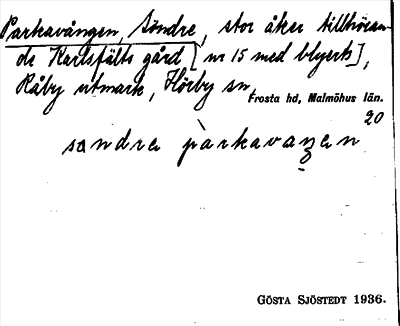 Parkavången, Söndre, stor åker tillhöran-
de Karlsfälts gård [nr 15 med blyerts],
Råby utmark, Hörby sn,
Frosta hd, Malmöhus län.
20
sandre parkavaŋen
GÖSTA SJÖSTEDT 1936.